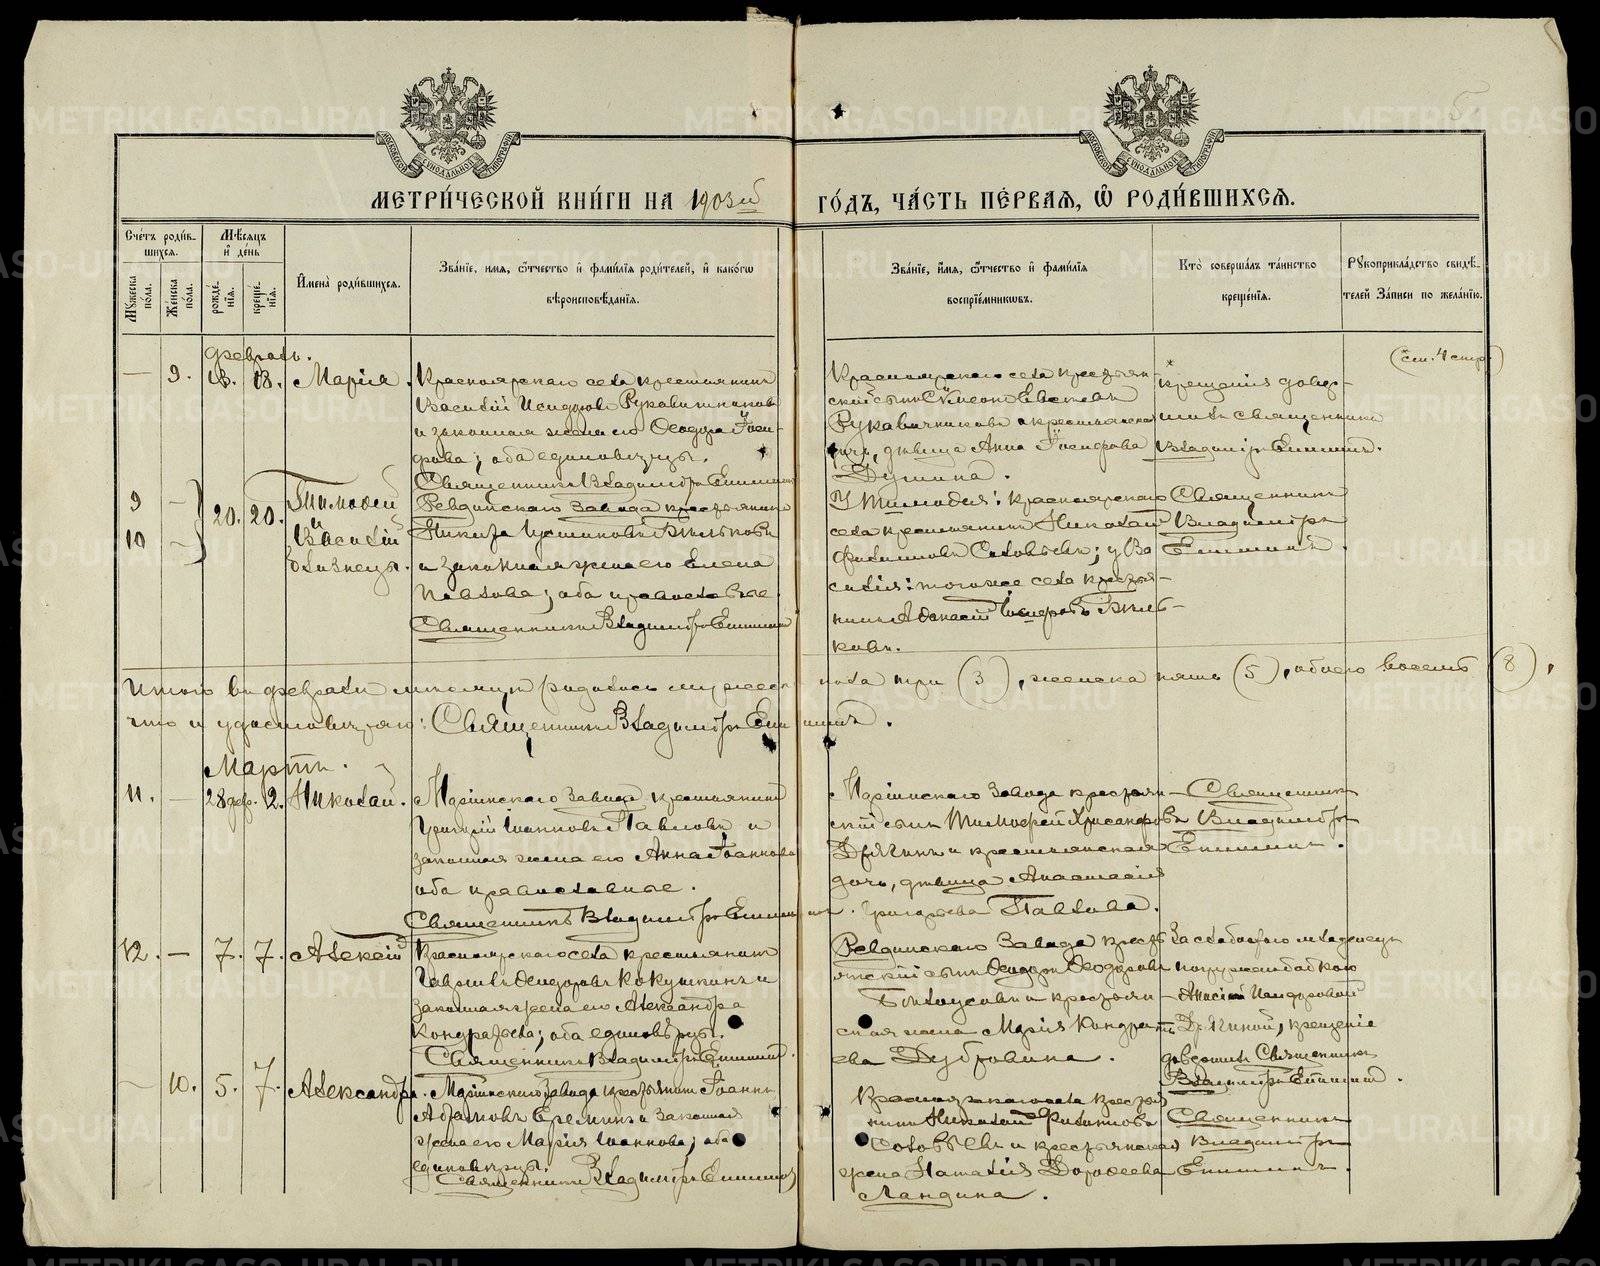 МЕТРИ́ЧЕСКОЙ КНИ́ГИ НА 1903й
ГО́ДЪ, ЧА́СТЬ ПЕ́РВАѦ, Ѽ РОДИ́ВШИХСѦ.
Сче́тъ роди́в-
шихсѧ.
Мꙋ́жеска по́ла.
Же́нска по́ла.
Мѣ́сѧцъ
и҆ де́нь
рожде́нїѧ.
креще́нїѧ.
И҆мена̀ роди́вшихсѧ.
Зва́нїе, и҆мѧ, ѿтчество и҆ фами́лїѧ роди́телей, и҆ како́гѡ
вѣроисповѣ́данїѧ.
Зва́нїе, и҆мѧ, ѿтчество и҆ фами́лїѧ
воспрїе́мникѡвъ.
Кто̀ соверша́лъ та́инство
креще́нїѧ.
Рꙋкоприкла́дство свидѣ́-
телей За́писи по жела́нїю.
Февраль.
— 9. 18. 18. Марія.
Красноярскаго села крестьянинъ
Василій Исидоровъ Рукавишниковъ
и законная жена его Феодора Іоси-
фова; оба единовѣрцы.
Священникъ Владиміръ Епишинъ
Красноярскаго села крестьян-
скій сынъ Сѵмеонъ
Рукавишниковъ и крестьянская
дочь, дѣвица Анна Іосифова
* крещенія довер-
шилъ священникъ
Владиміръ Епишинъ.
(*см. 4 стр.)
9 — 20. 20. Тимофей
и
10 — Василій
близнецы.
Ревдинскаго Завода крестьянинъ
Никита Іустиновъ Бѣльковъ
и законная жена его Елена
Павлова; оба православные.
Священникъ Владиміръ Епишинъ
У Тимофея: Красноярскаго
села крестьянинъ Николай
Филипповъ Соловьевъ; у Ва
силія: того же села крестья-
нинъ Афанасій Іосифовъ Бѣль-
ковъ.
Священникъ
Владиміръ
Епишинъ.
Итого въ февралѣ мѣсяцѣ родилось мужеска пола три (3), женска пять (5), обоего восемь (8),
что и удостовѣряю: Священникъ Владиміръ Епишинъ.
Мартъ.
11. — 28 фев. 2. Николай.
Маріинскаго Завода крестьянинъ
Григорій Іоанновъ Павловъ и
законная жена его Анна Іоаннова
оба православные.
Священникъ Владиміръ Епишинъ.
Маріинскаго Завода крестьян-
скій сынъ Тимофей Хрисанфовъ
Дрягинъ и крестьянская
дочь, дѣвица Анастасія
Григорьева Павлова.
Священникъ
Владиміръ
Епишинъ.
12. — 7. 7. Алексій
Красноярскаго села крестьянинъ
Гавріилъ Феодоровъ Кокушкинъ и
законная жена его Александра
Кондратьева; оба единовѣрцы.
Священникъ Владиміръ Епишинъ.
Ревдинскаго Завода кресть
янскій сынъ Феодоръ Феодоровъ
Бѣлоусовъ и крестьян-
ская жена Марія Кондрать
ева Дубровина.
За слабостію младенецъ
погруженъ бабкою
Анисіей Исидоровой
Дрягиной, крещеніе
довершилъ Священникъ
Владиміръ Епишинъ.
— 10. 5. 7. Александра.
Маріинскаго Завода крестьянинъ Іоаннъ
Абрамовъ Ереминъ и законная
жена его Марія Іоаннова; оба
единовѣрцы.
Священникъ Владиміръ Епишинъ
Красноярскаго села крестья
нинъ Николай Филиппов
Соловьевъ и крестьянская
жена Наталія Дорофеева
Ландина.
Священникъ
Владиміръ
Епишинъ.
METRIKI.GASO-URAL.RU